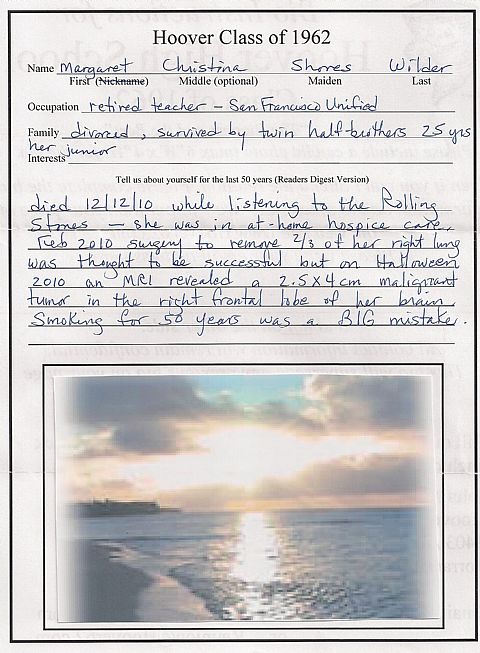 Hoover Class of 1962
Name Margaret Christina Shores Wilder
First (Nickname) Middle (optional) Maiden Last
Occupation retired teacher – San Francisco Unified
Family divorced, survived by twin half-brothers 25 yrs
her junior
Interests
Tell us about yourself for the last 50 years (Readers Digest Version)
died 12/12/10 while listening to the Rolling
Stones — she was in at-home hospice care.
Feb 2010 surgery to remove 2/3 of her right lung
was thought to be successful but on Halloween
2010 an MRI revealed a 2.5 X 4 cm malignant
tumor in the right frontal lobe of her brain.
Smoking for 50 years was a BIG mistake.